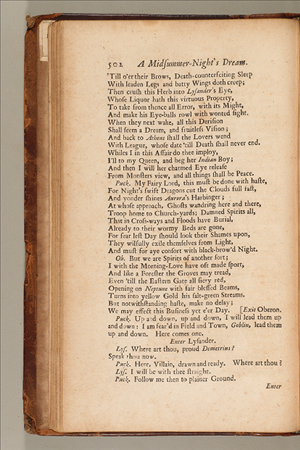 502 A Midsummer-Night's Dream.
'Till o'er their Brows, Death-counterfeiting Sleep
With leaden Legs and batty Wings doth creep;
Then crush this Herb into Lysander's Eye,
Whose Liquor hath this virtuous Property,
To take from thence all Error, with its Might,
And make his Eye-balls rowl with wonted sight.
When they next wake, all this Derision
Shall seem a Dream, and fruitless Vision;
And back to Athens shall the Lovers wend
With League, whose date 'till Death shall never end.
Whiles I in this Affair do thee imploy,
I'll to my Queen, and beg her Indian Boy;
And then I will her charmed Eye release
From Monsters view, and all things shall be Peace.
Puck. My Fairy Lord, this must be done with haste,
For Night's swift Dragons cut the Clouds full fast,
And yonder shines Aurora's Harbinger;
At whose approach, Ghosts wandring here and there,
Troop home to Church-yards; Damned Spirits all,
That in Cross-ways and Floods have Burial,
Already to their wormy Beds are gone,
For fear lest Day should look their Shames upon,
They wilfully exile themselves from Light,
And must for aye consort with black-brow'd Night.
Ob. But we are Spirits of another sort;
I with the Morning-Love have oft made sport,
And like a Forester the Groves may tread,
Even 'till the Eastern Gate all fiery red,
Opening on Neptune with fair blessed Beams,
Turns into yellow Gold his salt-green Streams.
But notwithstanding haste, make no delay;
We may effect this Business yet e'er Day. [Exit Oberon.
Puck. Up and down, up and down, I will lead them up
and down: I am fear'd in Field and Town, Goblin, lead them
up and down. Here comes one.
Enter Lysander.
Lys. Where art thou, proud Demetrius?
Speak thou now.
Puck. Here, Villain, drawn and ready. Where art thou?
Lys. I will be with thee straight.
Puck. Follow me then to plainer Ground.
Enter